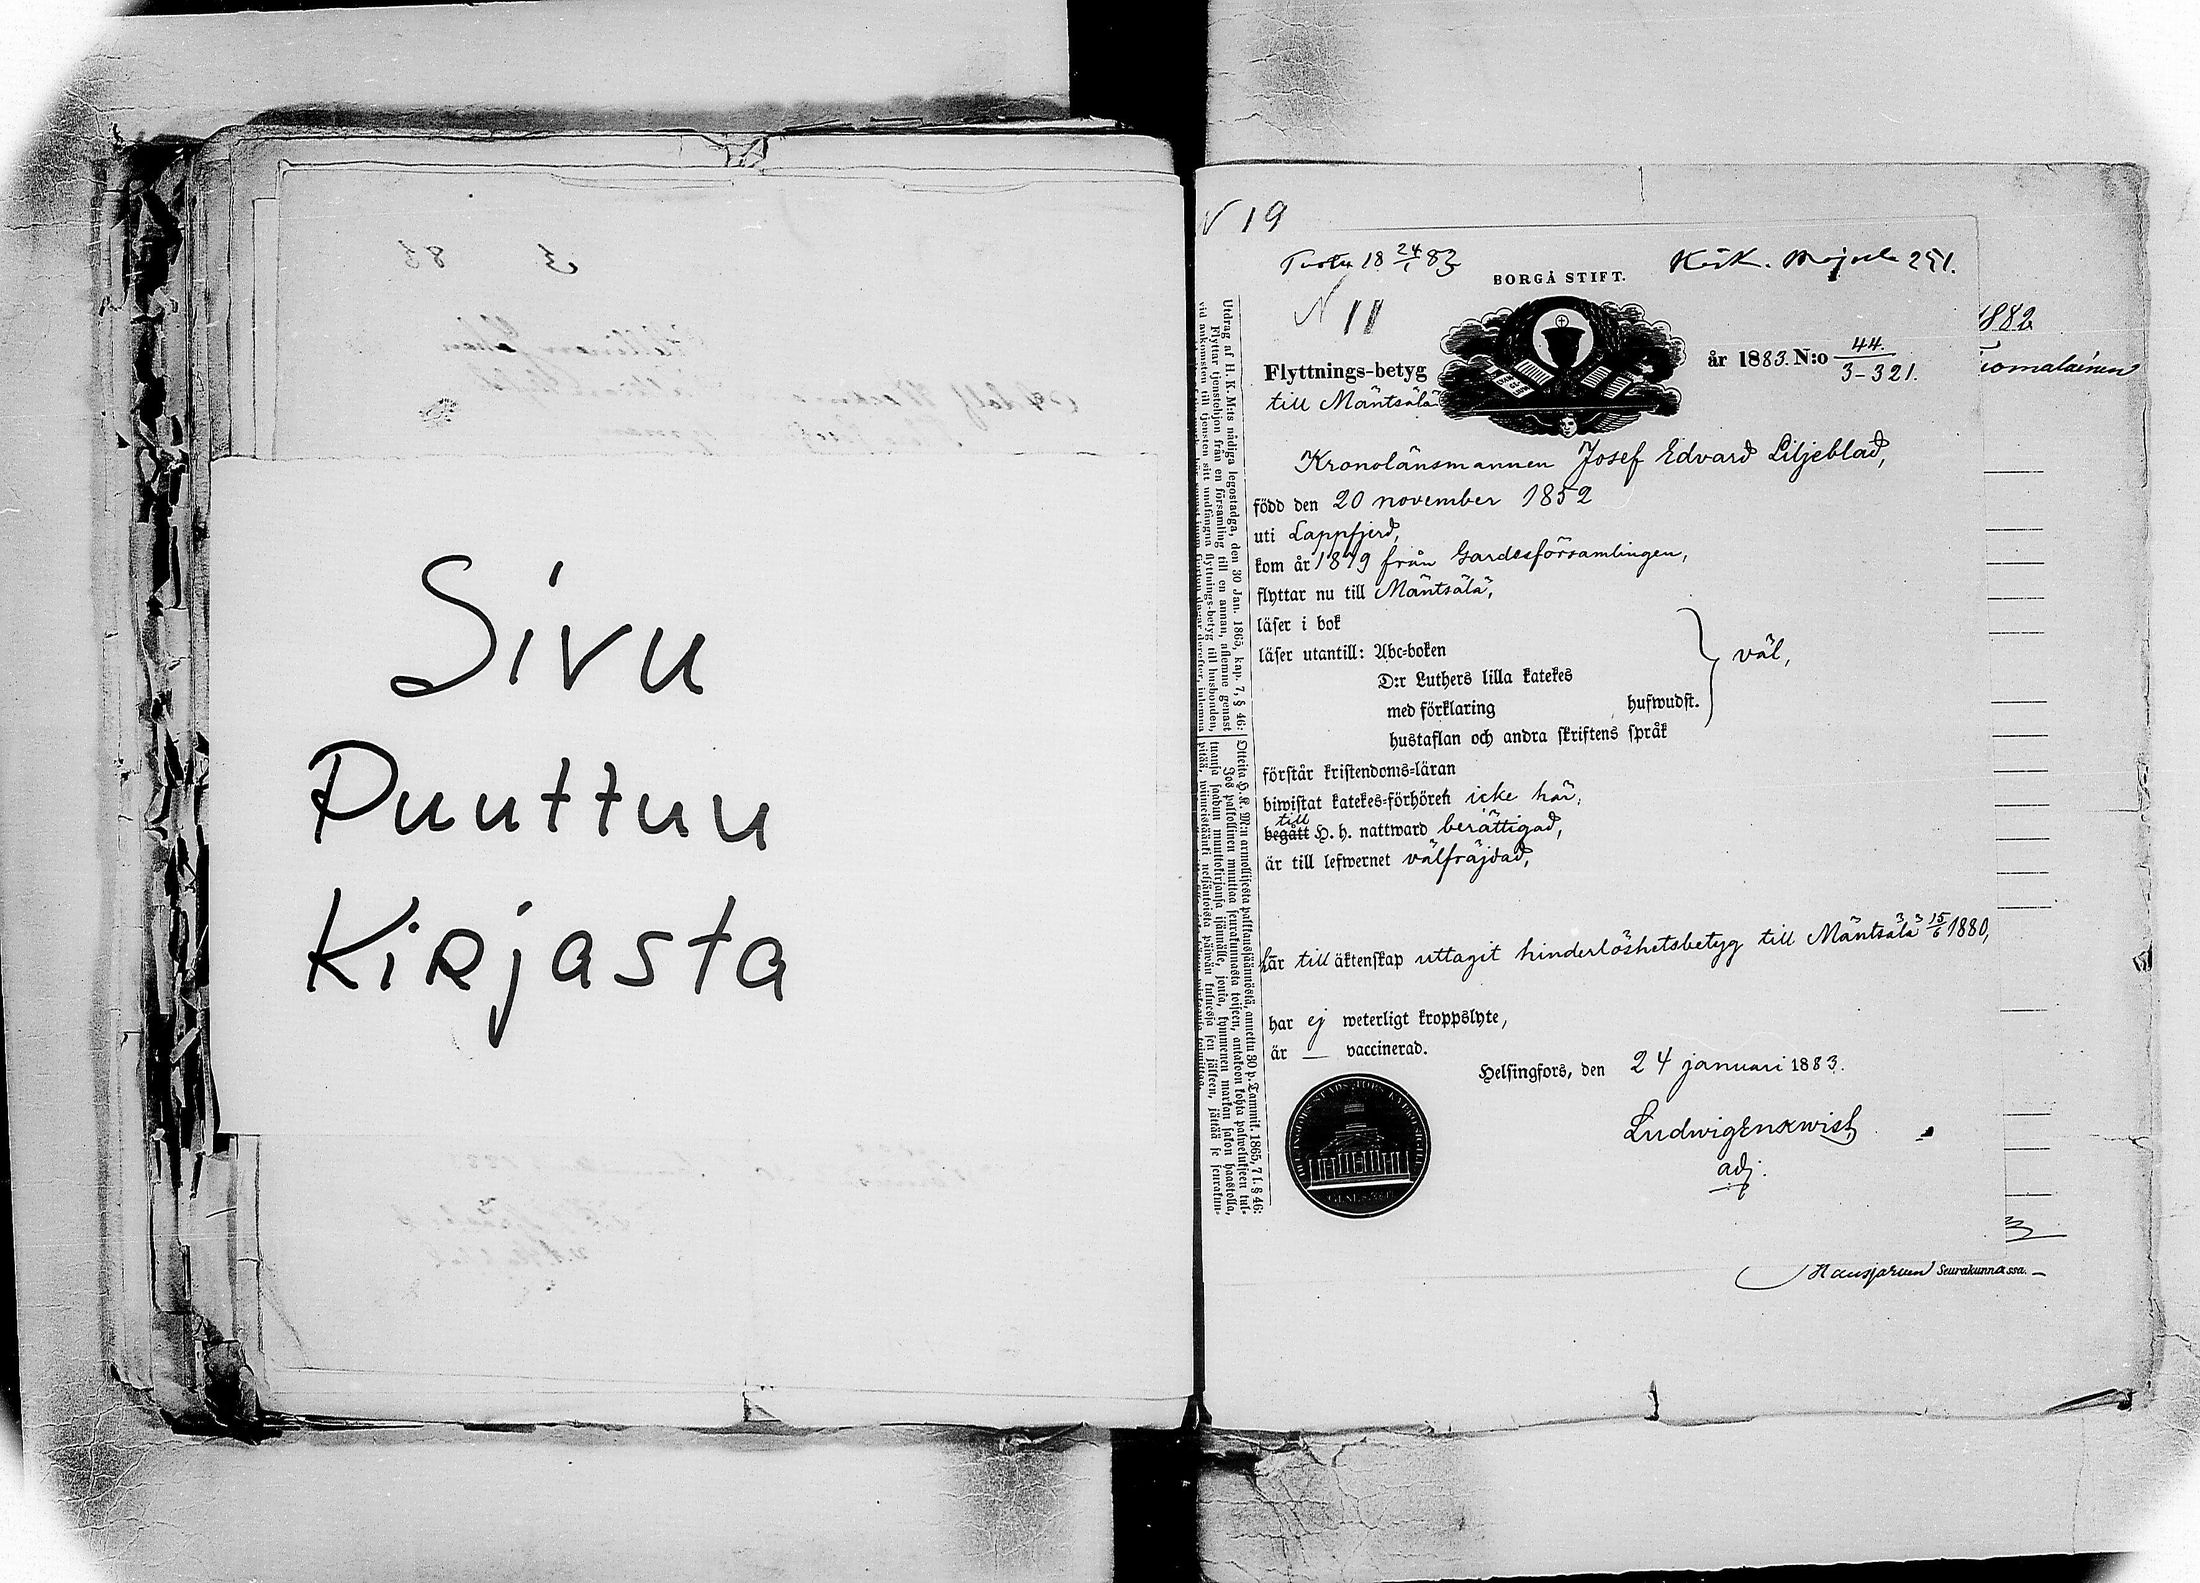 Sivu
Puuttuu
Kirjasta
N 19
18 24/1 83
BORGÅ STIFT.
251.
N 11
Flyttnings-betyg
år 1883. N:o 44. / 3-321.
till Mäntsälä
1882
Kronolänsmannen Josef Edvard Liljeblad,
född den 20 november 1852
uti Lappfjerd,
kom år 1879 från Gardesförsamlingen,
flyttar nu till Mäntsälä,
läser i bok
läser utantill: Abc-boken
väl,
D:r Luthers lilla katekes
med förklaring hufwudst.
hustaflan och andra skriftens språk
förstår kristendoms-läran
biwistat katekes-förhören icke här,
till
begått H. h. nattward berättigad,
är till lefwernet välfräjdad,
har till äktenskap uttagit hinderlöshetsbetyg till Mäntsälä 15/6 1880,
har ej weterligt kroppslyte,
är — vaccinerad.
Helsingfors, den 24 januari 1883.
Ludwig Enqwist
adj.
Hausjärven Seurakunnassa.
Utdrag af H. K. M:ts nådiga legostadga, den 30 Jan. 1865, kap. 7, § 46:
Flyttar tjenstehjon från en församling till en annan, aflemne genast
vid ankomsten till tjensten sitt undfångna flyttnings-betyg till husbonden,
Otteita H. K. M:n armollisesta palkkaussäännöstä, annettu 30 p. Tammik. 1865, 7 l. § 46:
Jos palkollinen muuttaa seurakunnasta toiseen, antakoon kohta palwelukseen tul-
tuansa saadun muuttokirjansa isännälle, joka, kymmenen markan sakon haastolla,